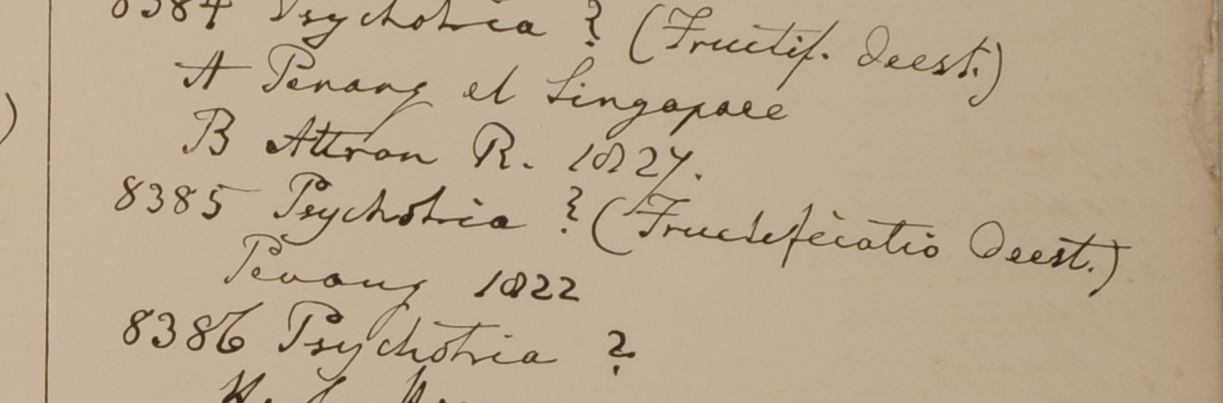 8384 Psychotria ? (Fructif. Deest.)
A Penang et Singapore
B Attran R. 1827.
8385 Psychotria ? (Fructificatio Deest.)
Penang 1822
8386 Psychotria ?